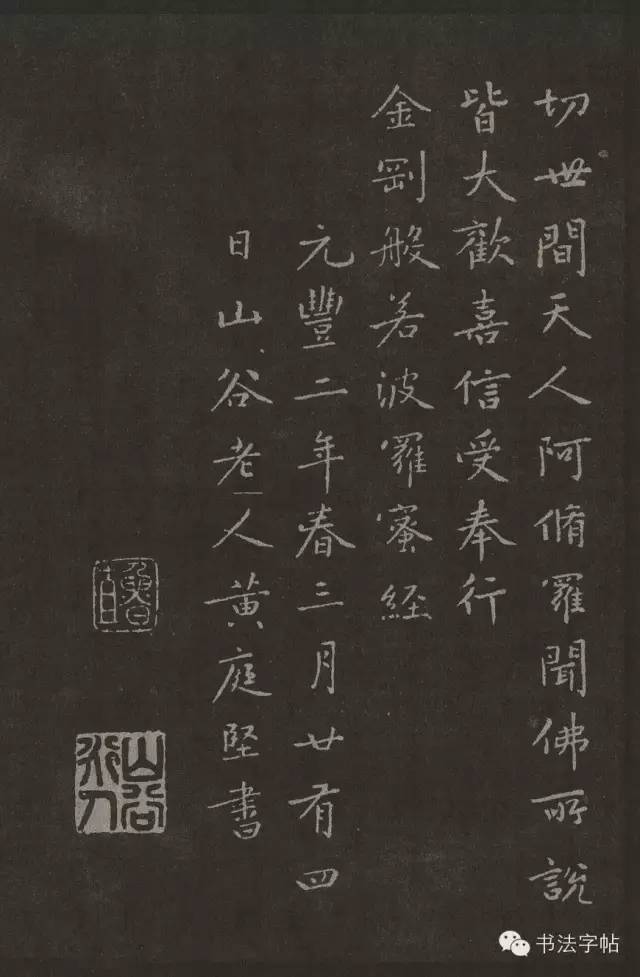 切世間天人阿脩羅聞佛所說
皆大歡喜信受奉行
金剛般若波羅蜜經
元豐二年春三月廿有四
日山谷老人黃庭堅書
书法字帖